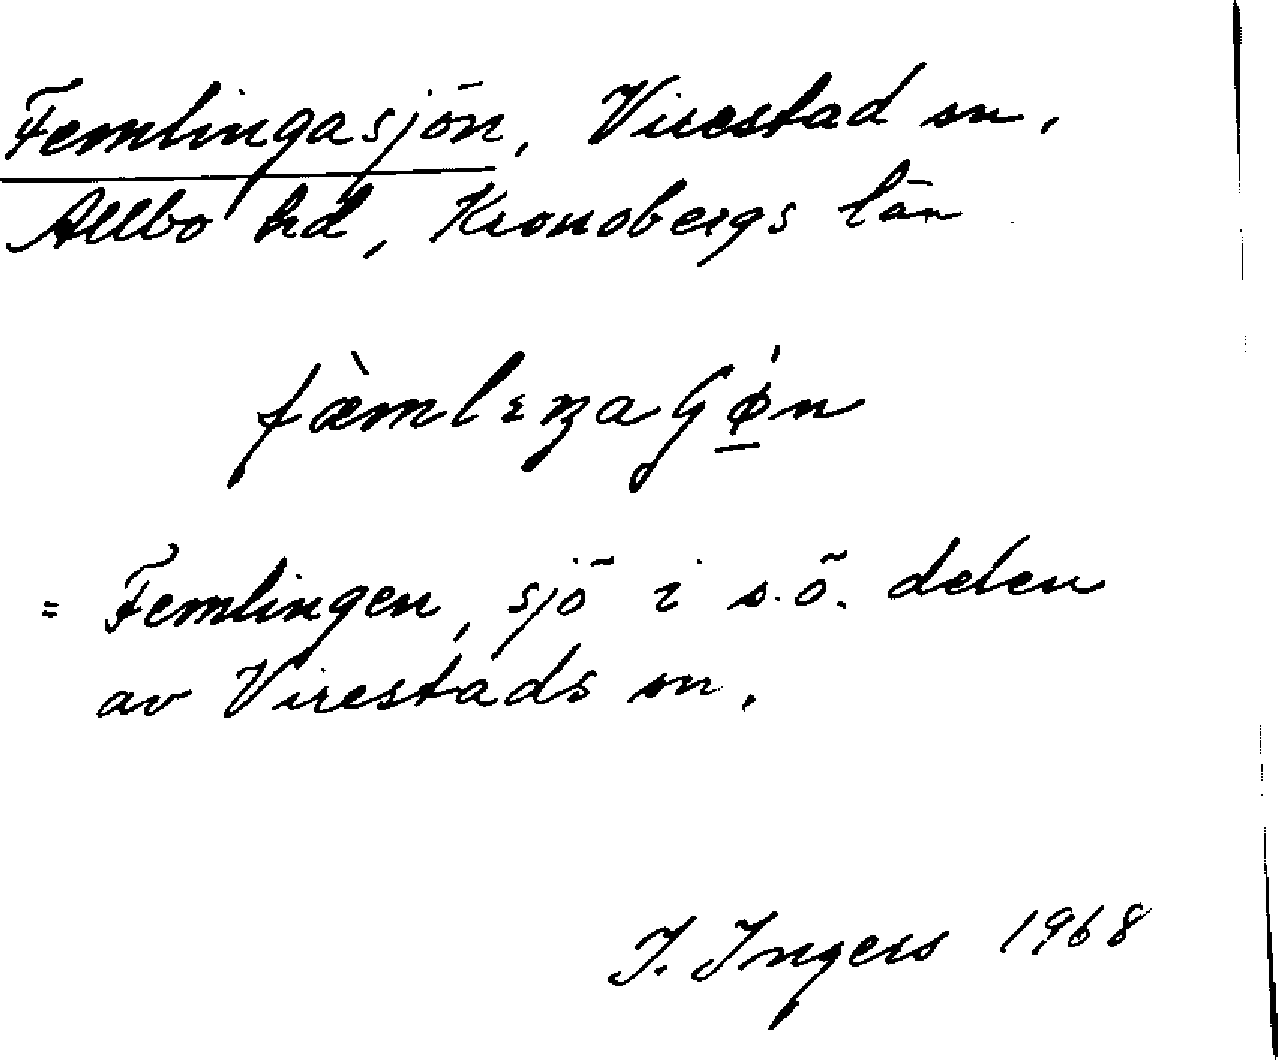 Femlingasjön, Virestad sn,
Allbo hd, Kronobergs län
= Femlingen, sjö i s.ö. delen
av Virestads sn.
I. Ingers 1968